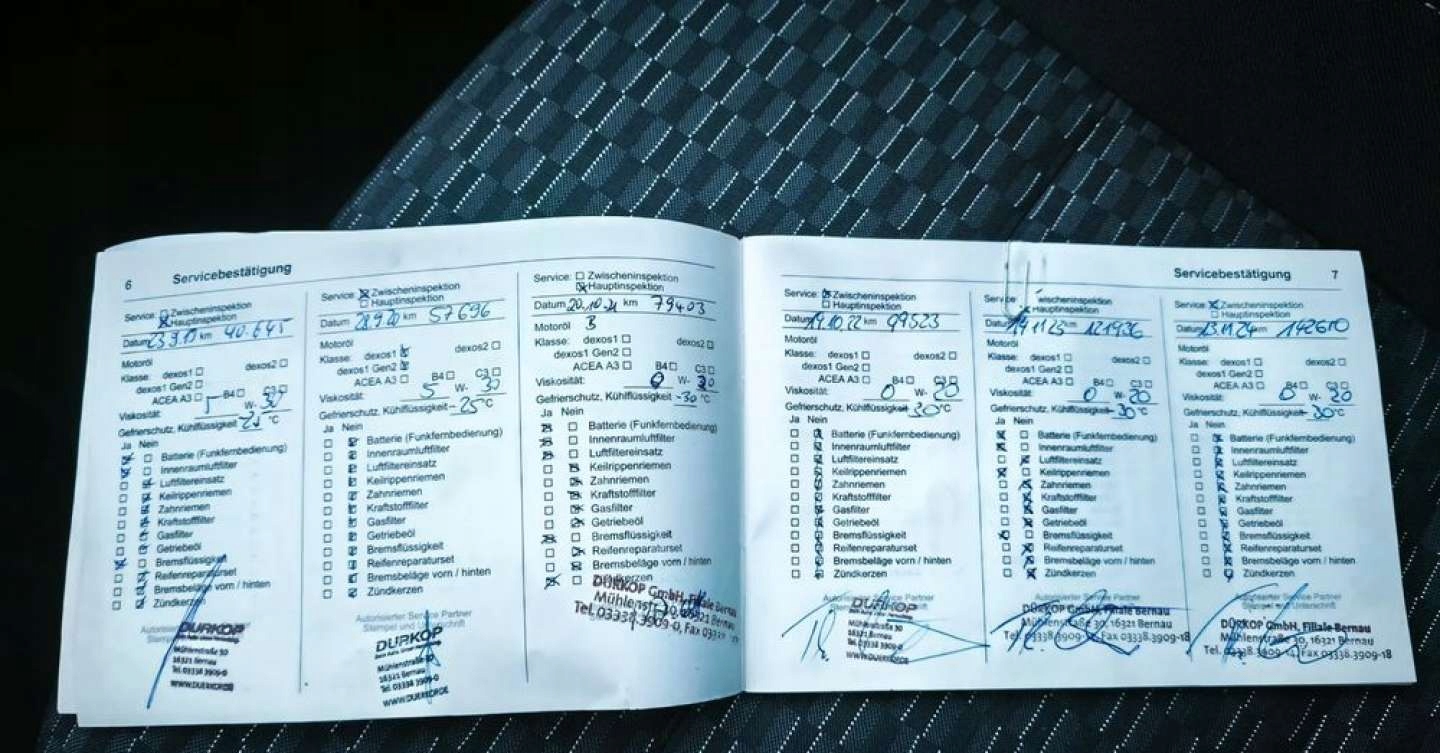 6 Servicebestätigung
Service: Zwischeninspektion
Hauptinspektion
Datum 23.9.19 km 40.645
Motoröl
Klasse: dexos1 dexos2
dexos1 Gen2
ACEA A3 B4 C3
Viskosität: 5 W- 30
Gefrierschutz, Kühlflüssigkeit °C
Ja Nein
Batterie (Funkfernbedienung)
Innenraumluftfilter
Luftfiltereinsatz
Keilrippenriemen
Zahnriemen
Kraftstofffilter
Gasfilter
Getriebeöl
Bremsflüssigkeit
Reifenreparaturset
Bremsbeläge vorn / hinten
Zündkerzen
DÜRKOP
Mühlenstraße 30
16321 Bernau
Tel. 03338 3909-0
WWW.DUERKOP.DE
Service: Zwischeninspektion
Hauptinspektion
Datum 28.9.20 km 57696
Motoröl
Klasse: dexos1 dexos2
dexos1 Gen2
ACEA A3 B4 C3
Viskosität: 5 W- 30
Gefrierschutz, Kühlflüssigkeit - 25 °C
Ja Nein
Batterie (Funkfernbedienung)
Innenraumluftfilter
Luftfiltereinsatz
Keilrippenriemen
Zahnriemen
Kraftstofffilter
Gasfilter
Getriebeöl
Bremsflüssigkeit
Reifenreparaturset
Bremsbeläge vorn / hinten
Zündkerzen
Autorisierter Service Partner
Stempel und Unterschrift
DÜRKOP
Mühlenstraße 30
16321 Bernau
Tel. 03338 3909-0
WWW.DUERKOP.DE
Service: Zwischeninspektion
Hauptinspektion
Datum 20.10.21 km 79403
Motoröl B
Klasse: dexos1 dexos2
dexos1 Gen2
ACEA A3 B4 C3
Viskosität: 0 W- 20
Gefrierschutz, Kühlflüssigkeit -30 °C
Ja Nein
Batterie (Funkfernbedienung)
Innenraumluftfilter
Luftfiltereinsatz
Keilrippenriemen
Zahnriemen
Kraftstofffilter
Gasfilter
Getriebeöl
Bremsflüssigkeit
Reifenreparaturset
Bremsbeläge vorn / hinten
Zündkerzen
DÜRKOP GmbH, Filiale Bernau
Mühlenstr. 30, 16321 Bernau
Tel. 03338.3909-0, Fax 03338
Servicebestätigung 7
Service: Zwischeninspektion
Hauptinspektion
Datum 19.10.22 km 99523
Motoröl
Klasse: dexos1 dexos2
dexos1 Gen2
ACEA A3 B4 C3
Viskosität: 0 W- 20
Gefrierschutz, Kühlflüssigkeit - 30 °C
Ja Nein
Batterie (Funkfernbedienung)
Innenraumluftfilter
Luftfiltereinsatz
Keilrippenriemen
Zahnriemen
Kraftstofffilter
Gasfilter
Getriebeöl
Bremsflüssigkeit
Reifenreparaturset
Bremsbeläge vorn / hinten
Zündkerzen
Autorisierter Service Partner
DÜRKOP
Mühlenstraße 30
16321 Bernau
WWW.DUERKOP.DE
Service: Zwischeninspektion
Hauptinspektion
Datum 14.11.23 km 121936
Motoröl
Klasse: dexos1 dexos2
dexos1 Gen2
ACEA A3 B4 C3
Viskosität: 0 W- 20
Gefrierschutz, Kühlflüssigkeit - 30 °C
Ja Nein
Batterie (Funkfernbedienung)
Innenraumluftfilter
Luftfiltereinsatz
Keilrippenriemen
Zahnriemen
Kraftstofffilter
Gasfilter
Getriebeöl
Bremsflüssigkeit
Reifenreparaturset
Bremsbeläge vorn / hinten
Zündkerzen
Autorisierter Service Partner
DÜRKOP GmbH, Filiale Bernau
Mühlenstraße 30, 16321 Bernau
Fax 03338.3909-18
Service: Zwischeninspektion
Hauptinspektion
Datum 13.11.24 km 142610
Motoröl
Klasse: dexos1 dexos2
dexos1 Gen2
ACEA A3 B4 C3
Viskosität: 0 W- 20
Gefrierschutz, Kühlflüssigkeit - 30 °C
Ja Nein
Batterie (Funkfernbedienung)
Innenraumluftfilter
Luftfiltereinsatz
Keilrippenriemen
Zahnriemen
Kraftstofffilter
Gasfilter
Getriebeöl
Bremsflüssigkeit
Reifenreparaturset
Bremsbeläge vorn / hinten
Zündkerzen
Autorisierter Service Partner
DÜRKOP GmbH, Filiale Bernau
Mühlenstraße 30, 16321 Bernau
Tel. Fax 03338.3909-18